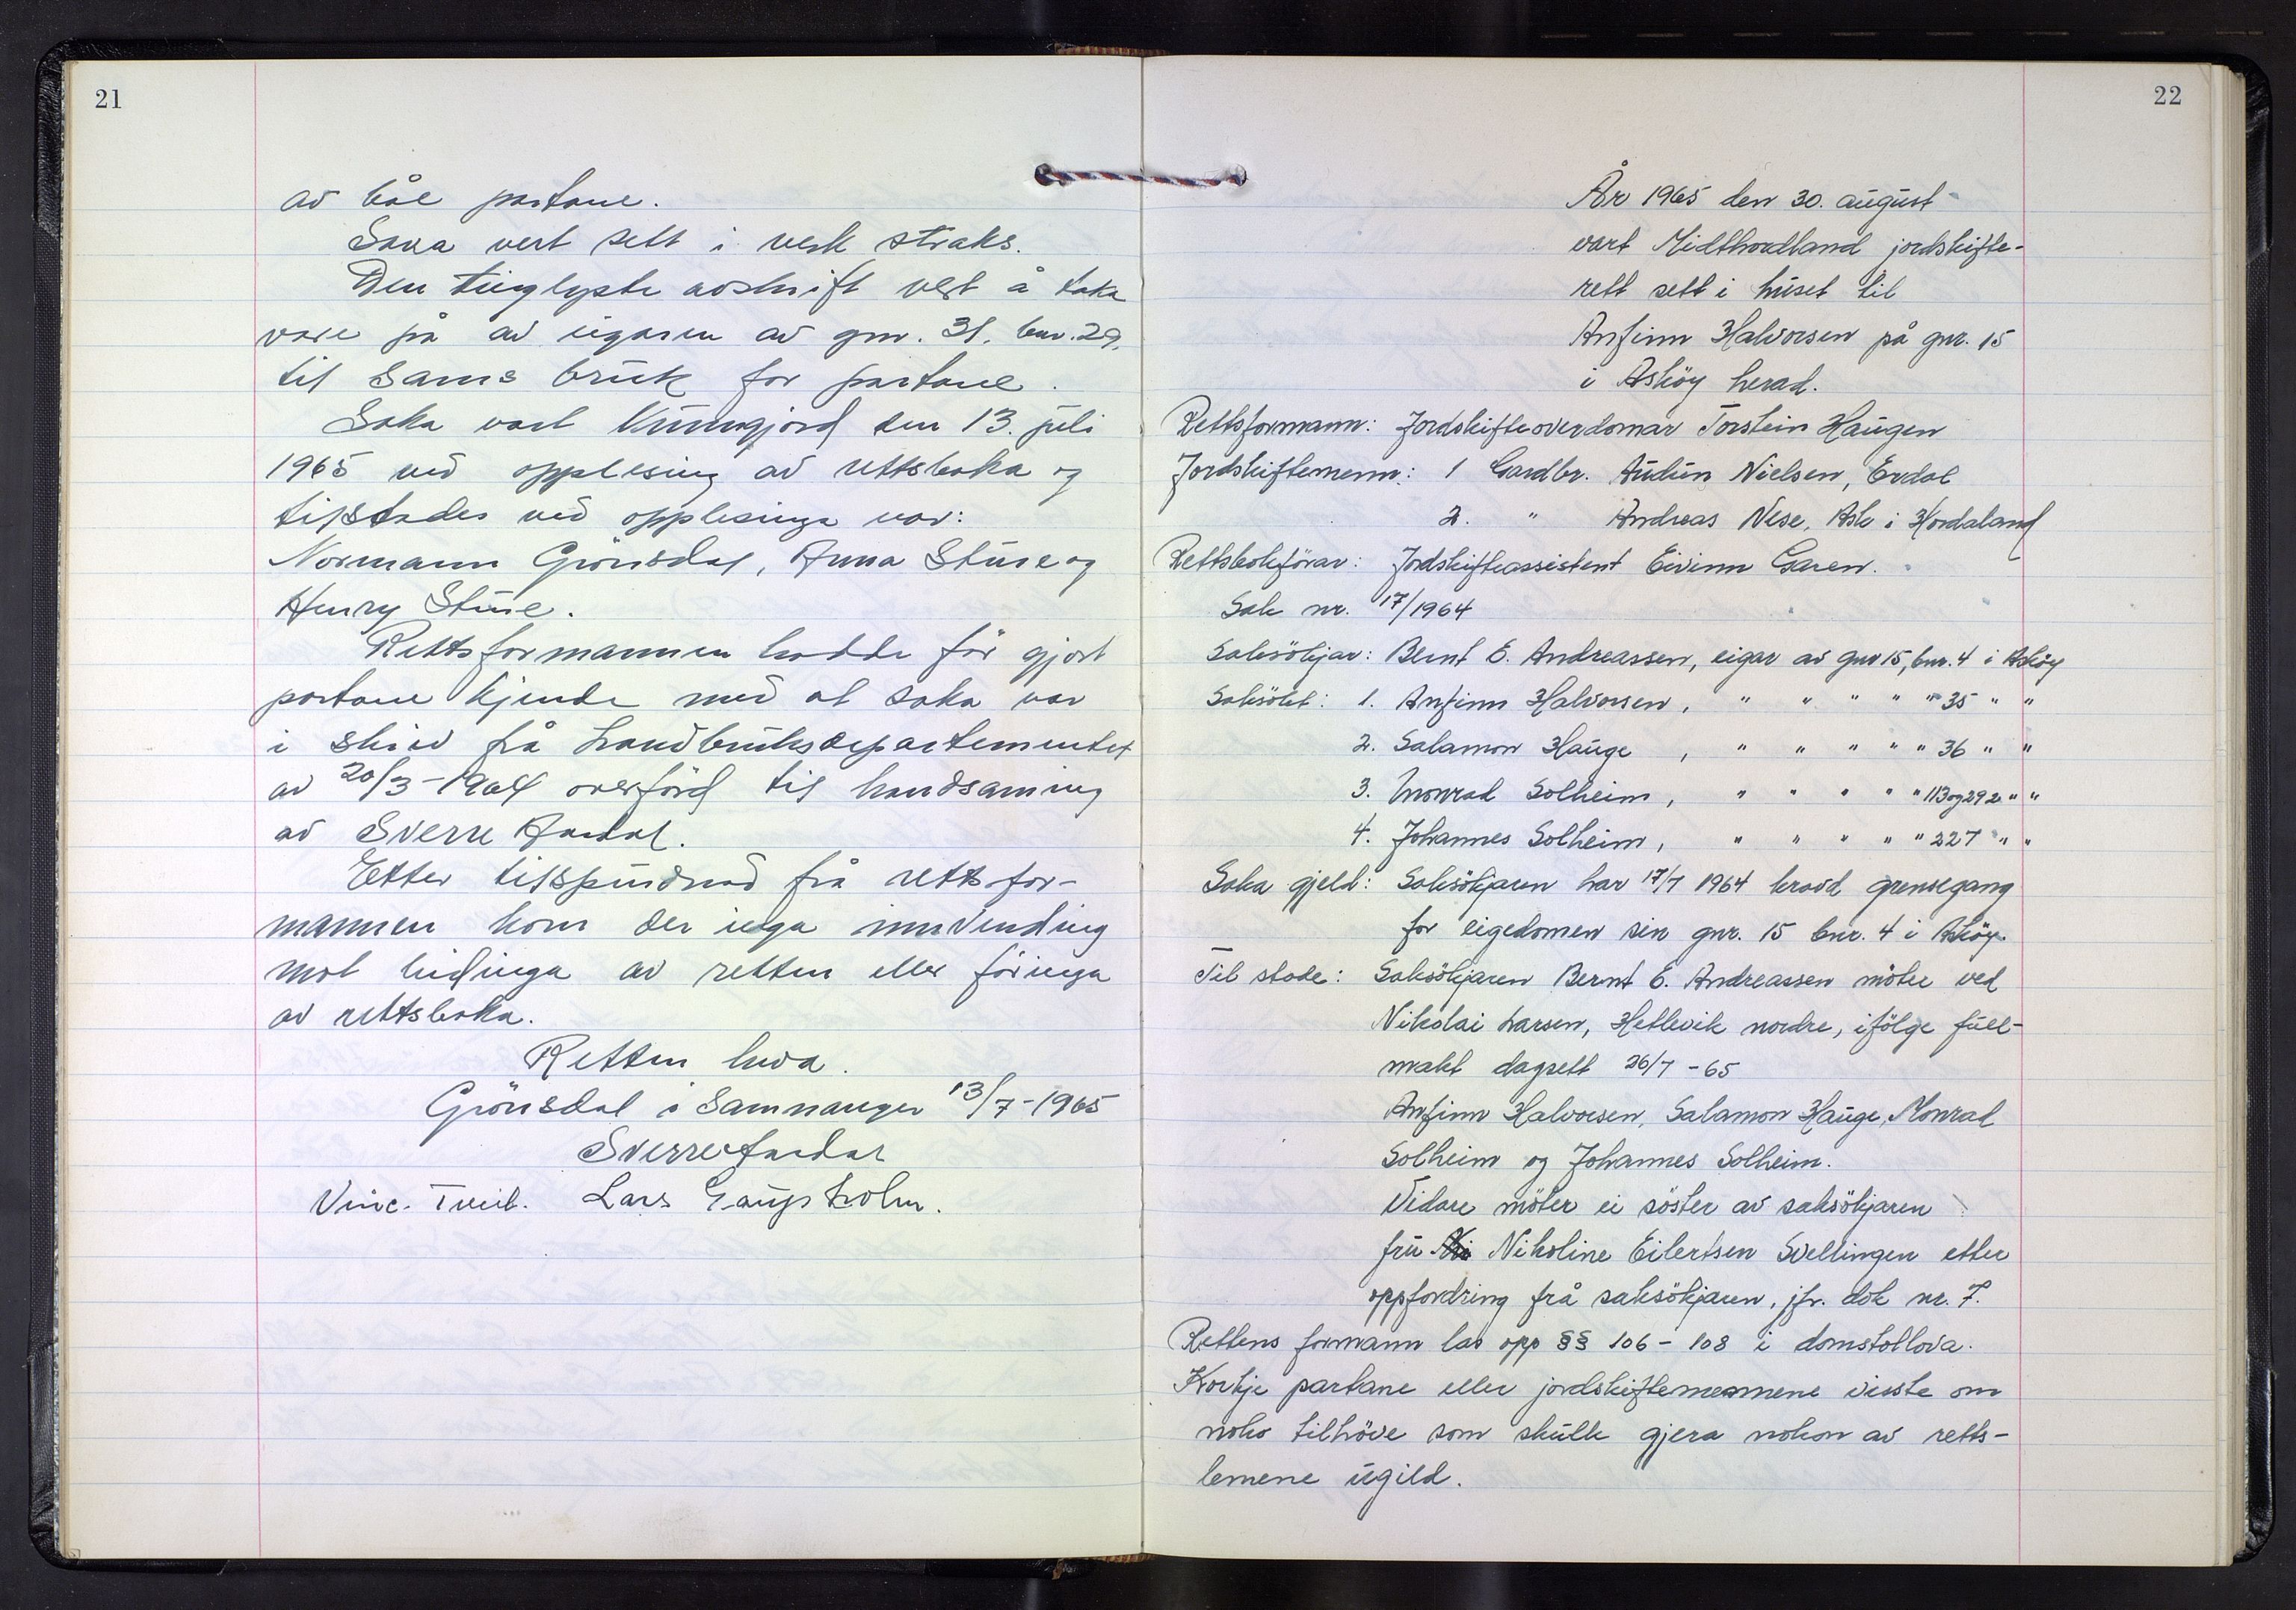 21
av båe partane.
Saka vert sett i verk straks.
Den tinglyste avskrift vert å taka
vare på av eigaren av gnr. 31. bnr. 29.
til sams bruk for partane.
Saka vart kunngjord den 13. juli
1965 ved opplesing av rettsboka og
tilstades ved opplesinga var:
Normann Grönsdal, Anna Stüse og
Henry Stüse.
Rettsformannen hadde før gjort
partane kjende med at saka var
i skriv frå Landbruksdepartementet
av 20/3-1964 overförd til handsaming
av Sverre Aardal.
Etter tilspurnad frå rettsfor-
mannen kom der inga innvending
mot leidinga av retten eller föringa
av rettsboka.
Retten heva.
Grönsdal i Samnanger 13/7-1965
Sverre Aardal
Vinc. Tveit. Lars Gaupholm.
22
År 1965 den 30. august
vart Midthordland jordskifte-
rett sett i huset til
Anfinn Halvorsen på gnr. 15
i Asköy herad.
Rettsformann: Jordskifteoverdomar Torstein Haugen
Jordskiftemenn: 1 Gardbr. Audun Nielsen, Erdal
2. " Andreas Nese, Ask i Hordaland
Rettsbokförar: Jordskifteassistent Eivinn Garen.
Sak nr. 17/1964
Saksökjar: Bernt E. Andreassen, eigar av gnr 15, bnr. 4 i Asköy
Saksökt: 1. Anfinn Halvorsen, " " " " " 35 " "
2. Salamon Hauge , " " " " " 36 " "
3. Monrad Solheim, " " " " " 113 og 292 " "
4. Johannes Solheim, " " " " " 227 " "
Saka gjeld: Saksökjaren har 17/7 1964 kravd grensegang
for eigedomen sin gnr. 15 bnr. 4 i Asköy.
Til stade: Saksökjaren Bernt E. Andreassen möter ved
Nikolai Larsen, Hetlevik nordre, ifölge full-
makt dagsett 26/7 - 65
Anfinn Halvorsen, Salamon Hauge, Monrad
Solheim og Johannes Solheim.
Vidare möter ei söster av saksökjaren
fru Nikoline Eilertsen Svellingen etter
oppfordring frå saksökjaren, jfr. dok nr. 7.
Rettens formann las opp §§ 106 - 108 i domstollova.
Korkje partane eller jordskiftemennene visste om
noko tilhöve som skulle gjera nokon av retts-
lemene ugild.